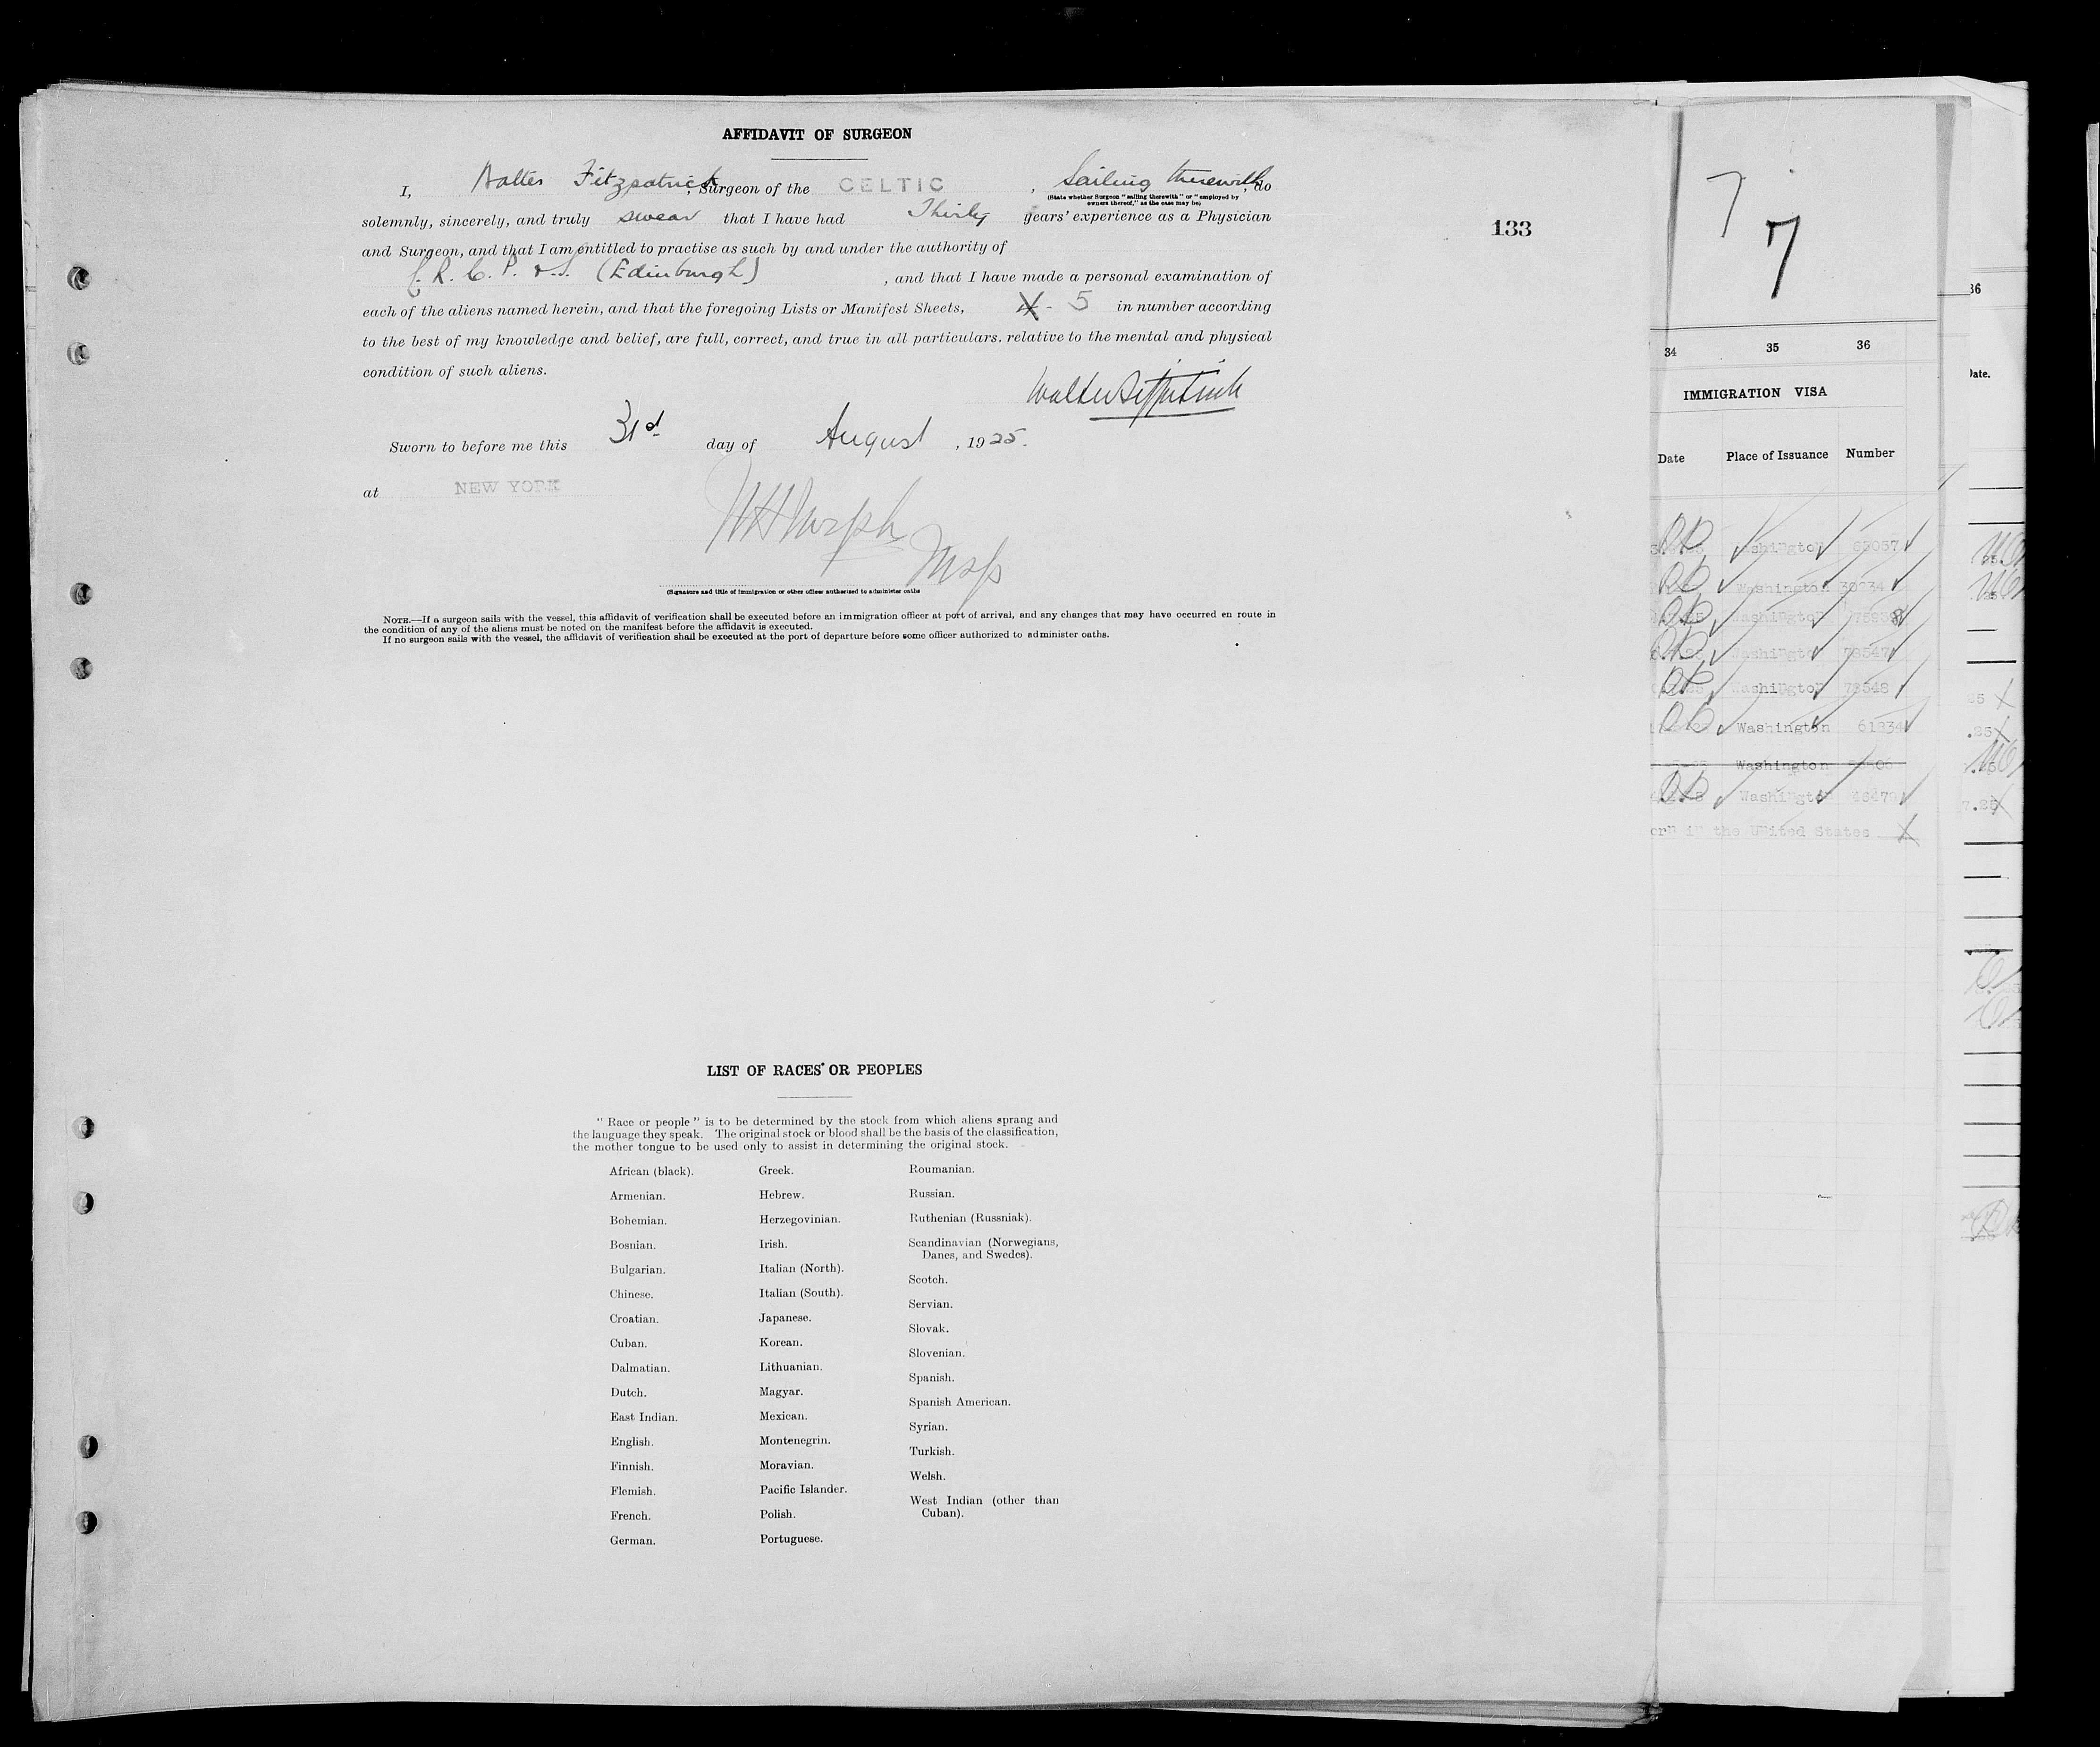 AFFIDAVIT OF SURGEON
I, Walter Fitzpatrick, Surgeon of the CELTIC, Sailing therewith, do
(State whether Surgeon "sailing therewith" or "employed by
owners thereof," as the case may be)
solemnly, sincerely, and truly swear that I have had Thirty years' experience as a Physician
133
and Surgeon, and that I am entitled to practise as such by and under the authority of
L.R.C.P. & S. (Edinburgh), and that I have made a personal examination of
each of the aliens named herein, and that the foregoing Lists or Manifest Sheets, 5 in number according
to the best of my knowledge and belief, are full, correct, and true in all particulars. relative to the mental and physical
condition of such aliens.
Walter Fitzpatrick
Sworn to before me this 31st day of August, 1925.
at NEW YORK
(Signature and title of immigration or other officer authorized to administer oaths
NOTE.—If a surgeon sails with the vessel, this affidavit of verification shall be executed before an immigration officer at port of arrival, and any changes that may have occurred en route in
the condition of any of the aliens must be noted on the manifest before the affidavit is executed.
If no surgeon sails with the vessel, the affidavit of verification shall be executed at the port of departure before some officer authorized to administer oaths.
LIST OF RACES OR PEOPLES
" Race or people " is to be determined by the stock from which aliens sprang and
the language they speak. The original stock or blood shall be the basis of the classification,
the mother tongue to be used only to assist in determining the original stock.
African (black).
Armenian.
Bohemian.
Bosnian.
Bulgarian.
Chinese.
Croatian.
Cuban.
Dalmatian.
Dutch.
East Indian.
English.
Finnish.
Flemish.
French.
German.
Greek.
Hebrew.
Herzegovinian.
Irish.
Italian (North).
Italian (South).
Japanese.
Korean.
Lithuanian.
Magyar.
Mexican.
Montenegrin.
Moravian.
Pacific Islander.
Polish.
Portuguese.
Roumanian.
Russian.
Ruthenian (Russniak).
Scandinavian (Norwegians,
Danes, and Swedes).
Scotch.
Servian.
Slovak.
Slovenian.
Spanish.
Spanish American.
Syrian.
Turkish.
Welsh.
West Indian (other than
Cuban).
7
7
34 35 36
IMMIGRATION VISA
Date Place of Issuance Number
Washington
Washington
Washington
Washington
Washington 78548
Washington 61234
Washington
Washington
in the United States
36
Date.